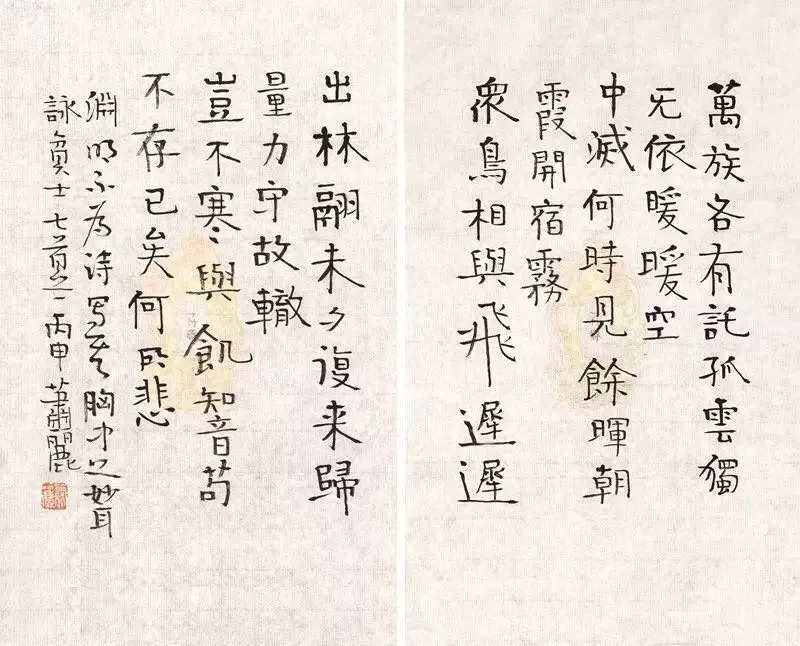 萬族各有託孤雲獨
无依暖暖空
中滅何時見餘暉朝
霞開宿霧
衆鳥相與飛遲遲
出林翮未夕復来歸
量力守故轍
豈不寒與飢知音苟
不存已矣何所悲
淵明不為詩寫其胸中之妙耳
詠貧士七首之一 丙申 蕭麗